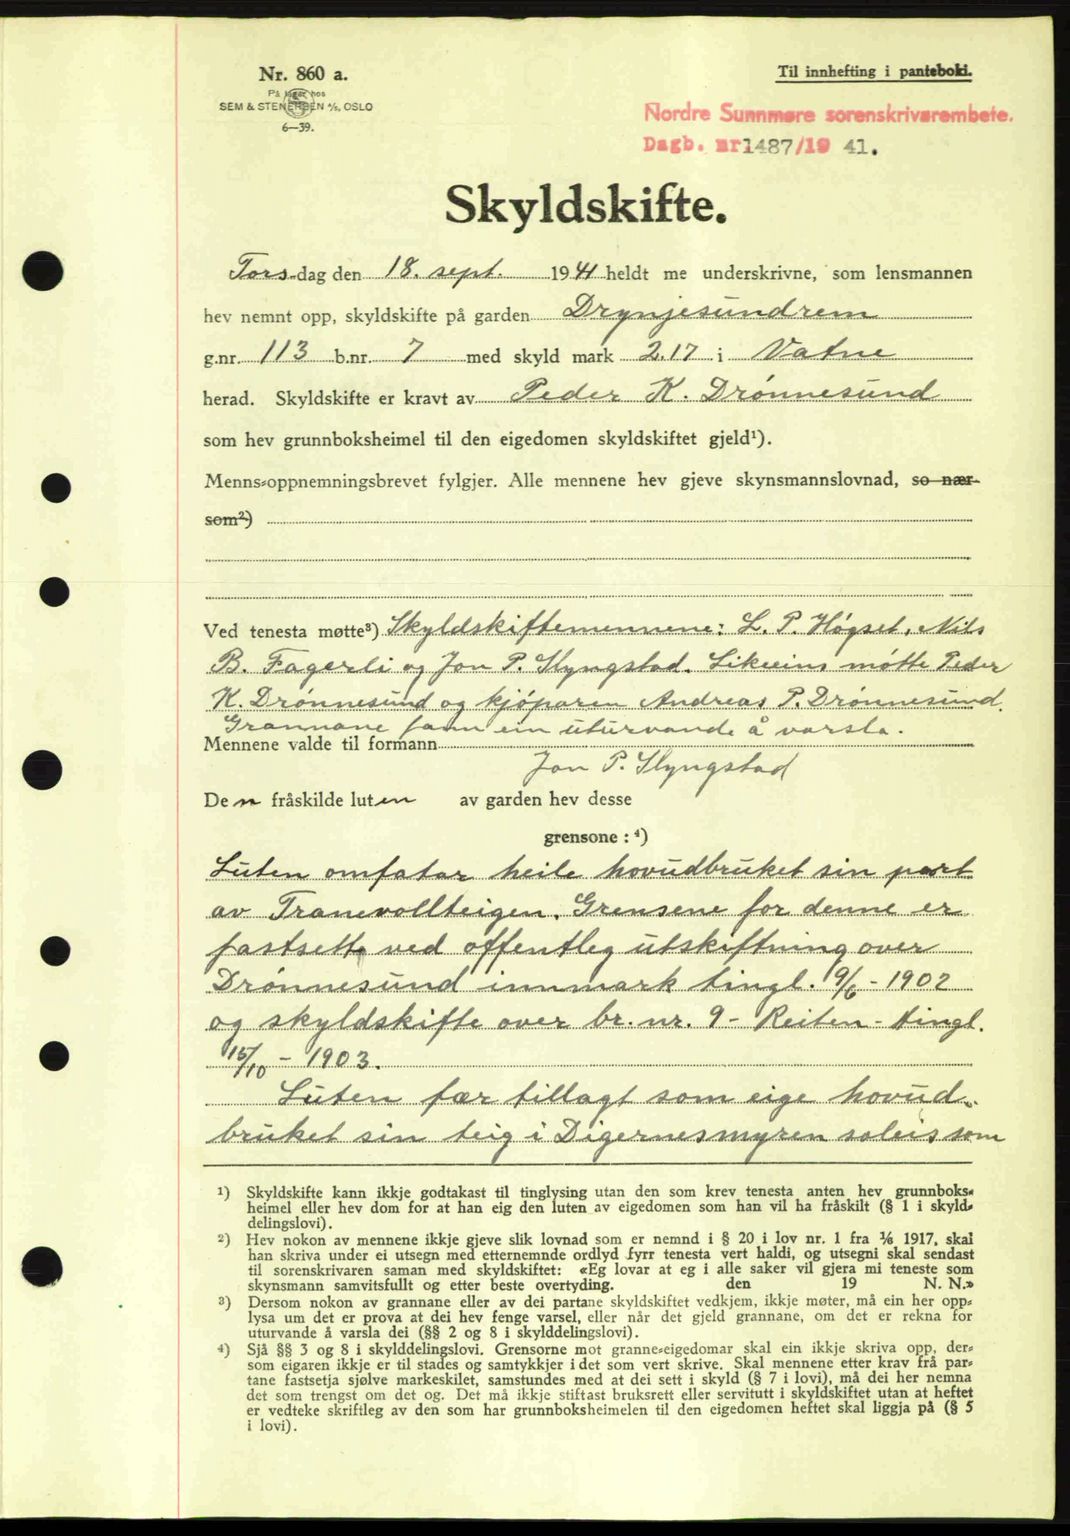 Nr. 860 a.
På lager hos
SEM & STENERSEN A/S, OSLO
6—39.
Til innhefting i panteboki.
Nordre Sunnmøre sorenskriverembete.
Dagb. nr 1487/19 41.
Skyldskifte.
Tors-dag den 18. sept. 1941 heldt me underskrivne, som lensmannen
hev nemnt opp, skyldskifte på garden Drynjesundrem
g.nr. 113 b.nr. 7 med skyld mark 2.17 i Vatne
herad. Skyldskifte er kravt av Peder K. Drønnesund
som hev grunnboksheimel til den eigedomen skyldskiftet gjeld¹).
Menns-oppnemningsbrevet fylgjer. Alle mennene hev gjeve skynsmannslovnad, so nær-
som²)
Ved tenesta møtte³) Skyldskiftemennene: L. P. Høgset, Nils
B. Fagerli og Jon P. Slyngstad. Likeeins møtte Peder
K. Drønnesund og kjøparen Andreas P. Drønnesund.
Grannane fann ein uturvande å varsla.
Mennene valde til formann
Jon P. Slyngstad
Den fråskilde luten av garden hev desse
grensone : ⁴)
Luten omfatar heile hovudbruket sin part
av Tranevollteigen. Grensene for denne er
fastsett ved offentleg utskiftning over
Drønnesund innmark tingl. 9/6 - 1902
og skyldskifte over br. nr. 9 - Reiten - tingl.
15/10 - 1903.
Luten fær tillagt som eige hovud-
bruket sin teig i Digernesmyren soleis som
¹) Skyldskifte kann ikkje godtakast til tinglysing utan den som krev tenesta anten hev grunnboks-
heimel eller hev dom for at han eig den luten av eigedomen som han vil ha fråskilt (§ 1 i skyld-
delingslovi).
²) Hev nokon av mennene ikkje gjeve slik lovnad som er nemnd i § 20 i lov nr. 1 fra 1/6 1917, skal
han skriva under ei utsegn med etternemnde ordlyd fyrr tenesta vert haldi, og utsegni skal sendast
til sorenskrivaren saman med skyldskiftet: «Eg lovar at eg i alle saker vil gjera mi teneste som
skynsmann samvitsfullt og etter beste overtyding. den 19 N. N.»
³) Dersom nokon av grannane eller av dei partane skyldskiftet vedkjem, ikkje møter, må ein her opp-
lysa um det er prova at dei hev fenge varsel, eller når det gjeld grannane, om det er rekna for
uturvande å varsla dei (§§ 2 og 8 i skylddelingslovi).
⁴) Sjå §§ 3 og 8 i skylddelingslovi. Grensorne mot granne-eigedomar skal ein ikkje skriva opp, der-
som eigaren ikkje er til stades og samtykkjer i det som vert skrive. Skal mennene etter krav frå par-
tane fastsetja sjølve markeskilet, samstundes med at dei sett i skyld (§ 7 i lovi), må dei her nemna
det som trengst om det og. Det må ikkje stiftast bruksrett eller servitutt i skyldskiftet utan at heftet
er vedteke skriftleg av den som har grunnboksheimelen til den eigedomen heftet skal liggja på (§ 5
i lovi).